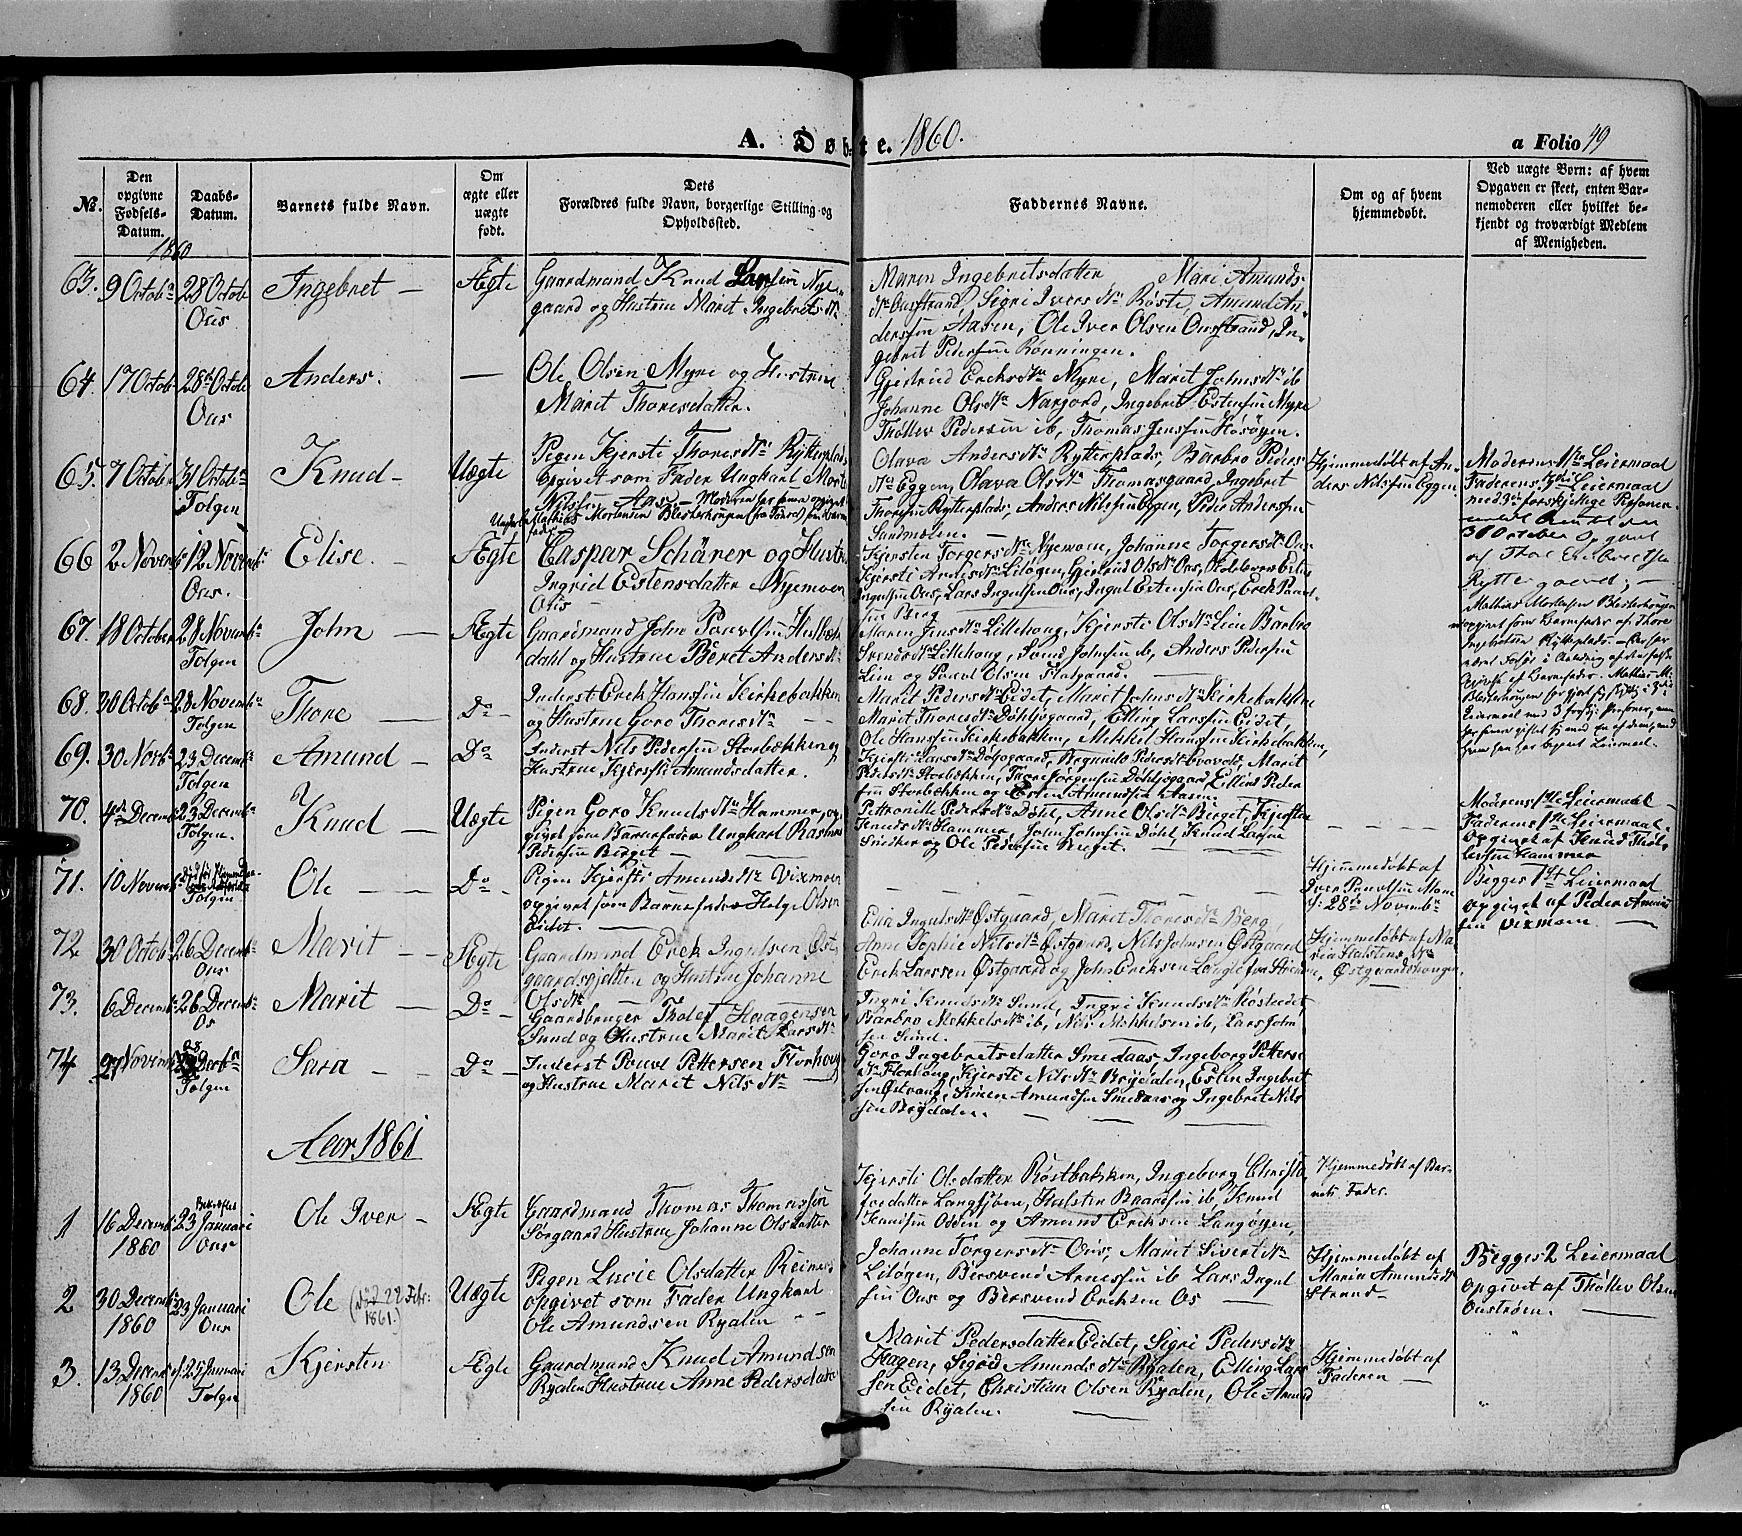 A. Døbte. 1860.
a Folio 49
№.
Den opgivne Fødsels-Datum.
Daabs-Datum.
Barnets fulde Navn.
Om ægte eller uægte født.
Dets Forældres fulde Navn, borgerlige Stilling og Opholdssted.
Faddernes Navne.
Om og af hvem hjemmedøbt.
Ved uægte Børn: af hvem Opgaven er skeet, enten Barnemoderen eller hvilket bekjendt og troværdigt Medlem af Menigheden.
1860
63. 9 Octobr 28 Octob Ous
Ingebret —
Ægte
Gaardmand Knud Larsen Nye-
gaard og Hustrue Marit Ingebrets dtr
Maren Ingebretsdatter Mari Amunds-
dtr Ousstrand, Sigri Ivers dtr Røste, Amund An-
dersen Aasen, Ole Iver Olsen Ousstrand, In-
gebret Pedersen Rønningen.
64. 17 Octob 28 Octob Ous
Anders.
—
Ole Olsen Myre og Hustrue
Marit Thoresdatter.
Gjertrud Ericksdtr Myre, Marit Johnsdtr ib
Johanne Olsdtr Narjord, Ingebret Estensen Myre
Thøllev Pedersen ib, Thomas Jensen Høsøyen.
65. 7 Octob 31 Octobr Tolgen
Knud —
Uægte
Pigen Kjersti Thoresdtr Rytterplads
Opgivet som Fader Ungkarl Morte
Nilsen Aas —
Mortensen Blesterhougen
Olava Andersdtr Rytterplads, Barbro Peders
dtr Eggen, Olava Olsdtr Thomasgaard, Ingebret
Thoresen Rytterplads, Anders Nilsen Eggen, Peder Andersen
Sandmælen. —
Hjemmedøbt af An-
ders Nilsen Eggen.
Moderens 1ste Leiermaal
Faderens Leiermaal
med 3de forskjellige Personer.
30 October Opgivet
af Thor
Ryttergaard. —
66 2 Novemb 12 Novemb Ous.
Elise. —
Ægte
Caspar Schärer og Hustr
Ingrid Estensdatter Nyemoen
Ous —
Kjersten Torgersdtr Nyemoen, Johanne Torgersdtr Ous
Kjersti Arnesdtr Liløgen, Gjertrud Olsdtr Ous,
Ingulsen Ous, Lars Ingulsen Ous, Ingul Estensen Ous, Erek Paul-
sen Berg
67. 18 October 28 Novemb Tolgen
John —
Ægte
Gaardmand John Pouvlsen Hulbæk
dahl og Hustrue Beret Andersdtr
Maren Jensdtr Lillehoug, Kjersti Olsdtr Lien Barbro
Svendsdtr Lillehoug, Svend Johnsen ib, Anders Pedersen
Lien og Pouvl Olsen Flatgaard. —
Mathias Mortensen Blesterhougen
opgivet som Barnefader af Thore
Ingebretsen Rytterplads
68. 30 Octob 28 Novemb Tolgen
Thore —
Do —
Inderst Erek Hansen Kirkebakken
og Hustrue Goro Thoresdtr — —
Marit Pedersdtr Eidet, Marit Johnsdtr Kirkebakken
Marit Thoresdtr Døhljogaard, Elling Larsen Eidet,
Ole Hansen Kirkebakken, Mekkel Hansen Kirkebakken,
Leiermaal med 3 forskj. Personer,
69. 30 Novb 23 Decemb Tolgen
Amund —
Do —
Inderst Nils Pedersen Storbækken og
Hustrue Kjersti Amundsdatter.
Kjersti Larsdtr Døljogaard, Marit
Pedersdtr Storbækken, Thore Jorgensen Døhljogaard Elling Peder
sen Storbækken og Esten Amundsen Aasen.
70. 4de Decemb 23 Decemb Tolgen.
Knud —
Uægte
Pigen Goro Knudsdtr Hammer, op-
givet som Barnefader Ungkarl Rasmus
Pedersen Berget — —
Petronille Pedersdtr Døhl, Anne Olsdtr Berget, Kjersten
Knudsdtr Hammer, John Johnsen Døhl, Knud Larsen
Snedker og Ole Pedersen Berget. —
Moderens 1ste Leiermaal —
Faderens 1ste Leiermaal.
opgivet af Knud Thøl-
lefsen Hammer
71. 10 Novemb Tolgen
Ole — —
Do —
Pigen Kjersti Amundsdtr Vixmoen
opgivet som Barnefader Helge Olsen
Eidet. —
Hjemmedøbt af
Iver Paulsen Moen
d: 28de Novembr
Begges 1ste Leiermaal
opgivet af Peder Amund
sen Vixmoen. —
72 30 Octob 26 Decemb Ous
Marit —
Ægte
Gaardmand Erek Ingulsen Øst-
gaardspladsen og Hustrue Johanne
Olsdtr —
Eli Ingulsdtr Østgaard, Marit Thoresdtr Berg,
Anne Sophie Nilsdtr Østgaard, Nils Johnsen Østgaard
Erek Larsen Østgaard og John Ereksen Langlie fra
Hjemmedøbt af Ma-
ria Halstensdtr
Østgaardshougen.
73. 6 Decemb 26 Decemb Os
Marit —
Do —
Gaardbruger Tholef Haagensen
Sund og Hustrue Marit Larsdtr
Ingri Knudsdtr Sund, Ingri Knudsdtr Røsteidet
Barbro Mekkelsdtr ib, Nils Mekkelsen ib, Lars John-
sen Sund.
74 27 Novemb 28 Decbr Tolgen
Sara — —
Do —
Inderst Pouvl Pettersen Florhoug
og Hustrue Marit Nilsdtr —
Goro Ingebretsdatter Smedaas, Ingeborg Petters
dtr Florhoug, Kjersti Nilsdtr Brydalen, Eslen Ingebret
sen Østvang, Simen Amundsen Smedaas og Ingebret Nils
sen Brydalen. —
Aar 1861
1 16 Decemb 1860 Bekræftes 23 Januari Ous
Ole Iver —
Ægte
Gaardmand Thomas Thomassen
Sørgaard Hustrue Johanne Olsdatter
Kjersti Olsdatter Røstbakken, Ingeborg Christo-
fersdatter Langsjøven, Halsten Baardsen ib, Knud
Knudsen Odden og Amund Ereksen Langøyen,
Hjemmedøbt af Bar-
nets Fader.
2 30 Decemb 1860 23 Januari Ous
Ole (død 22 Febr: 1861.)
Uægte
Pigen Lucie Olsdatter Reinerd
opgivet som Fader Ungkarl
Ole Amundsen Ryalen —
Johanne Torgersdtr Ous, Marit Sivertdtr
Liløgen, Bersvend Arnesen ib Lars Ingul
sen Ous og Bersvend Ereksen Os —
Hjemmedøbt af
Maria Amundsdtr
Strand —
Begges 2 Leiermaal
opgivet af Thøllev Olsen
Ousstrøen. —
3. 13 Decemb 1860 d 25 Januari Tolgen
Kjersten
Ægte
Gaardmand Knud Amundsen
Ryalen Hustrue Anne Pedersdatter
Marit Pedersdatter Eidet, Sigri Pedersdtr
Hagen, Sigrid Amundsdtr Ryalen, Elling Lar-
sen Eidet, Christian Olsen Ryalen, Ole Amund
sen Ryalen. —
Hjemmedøbt af
Faderen —